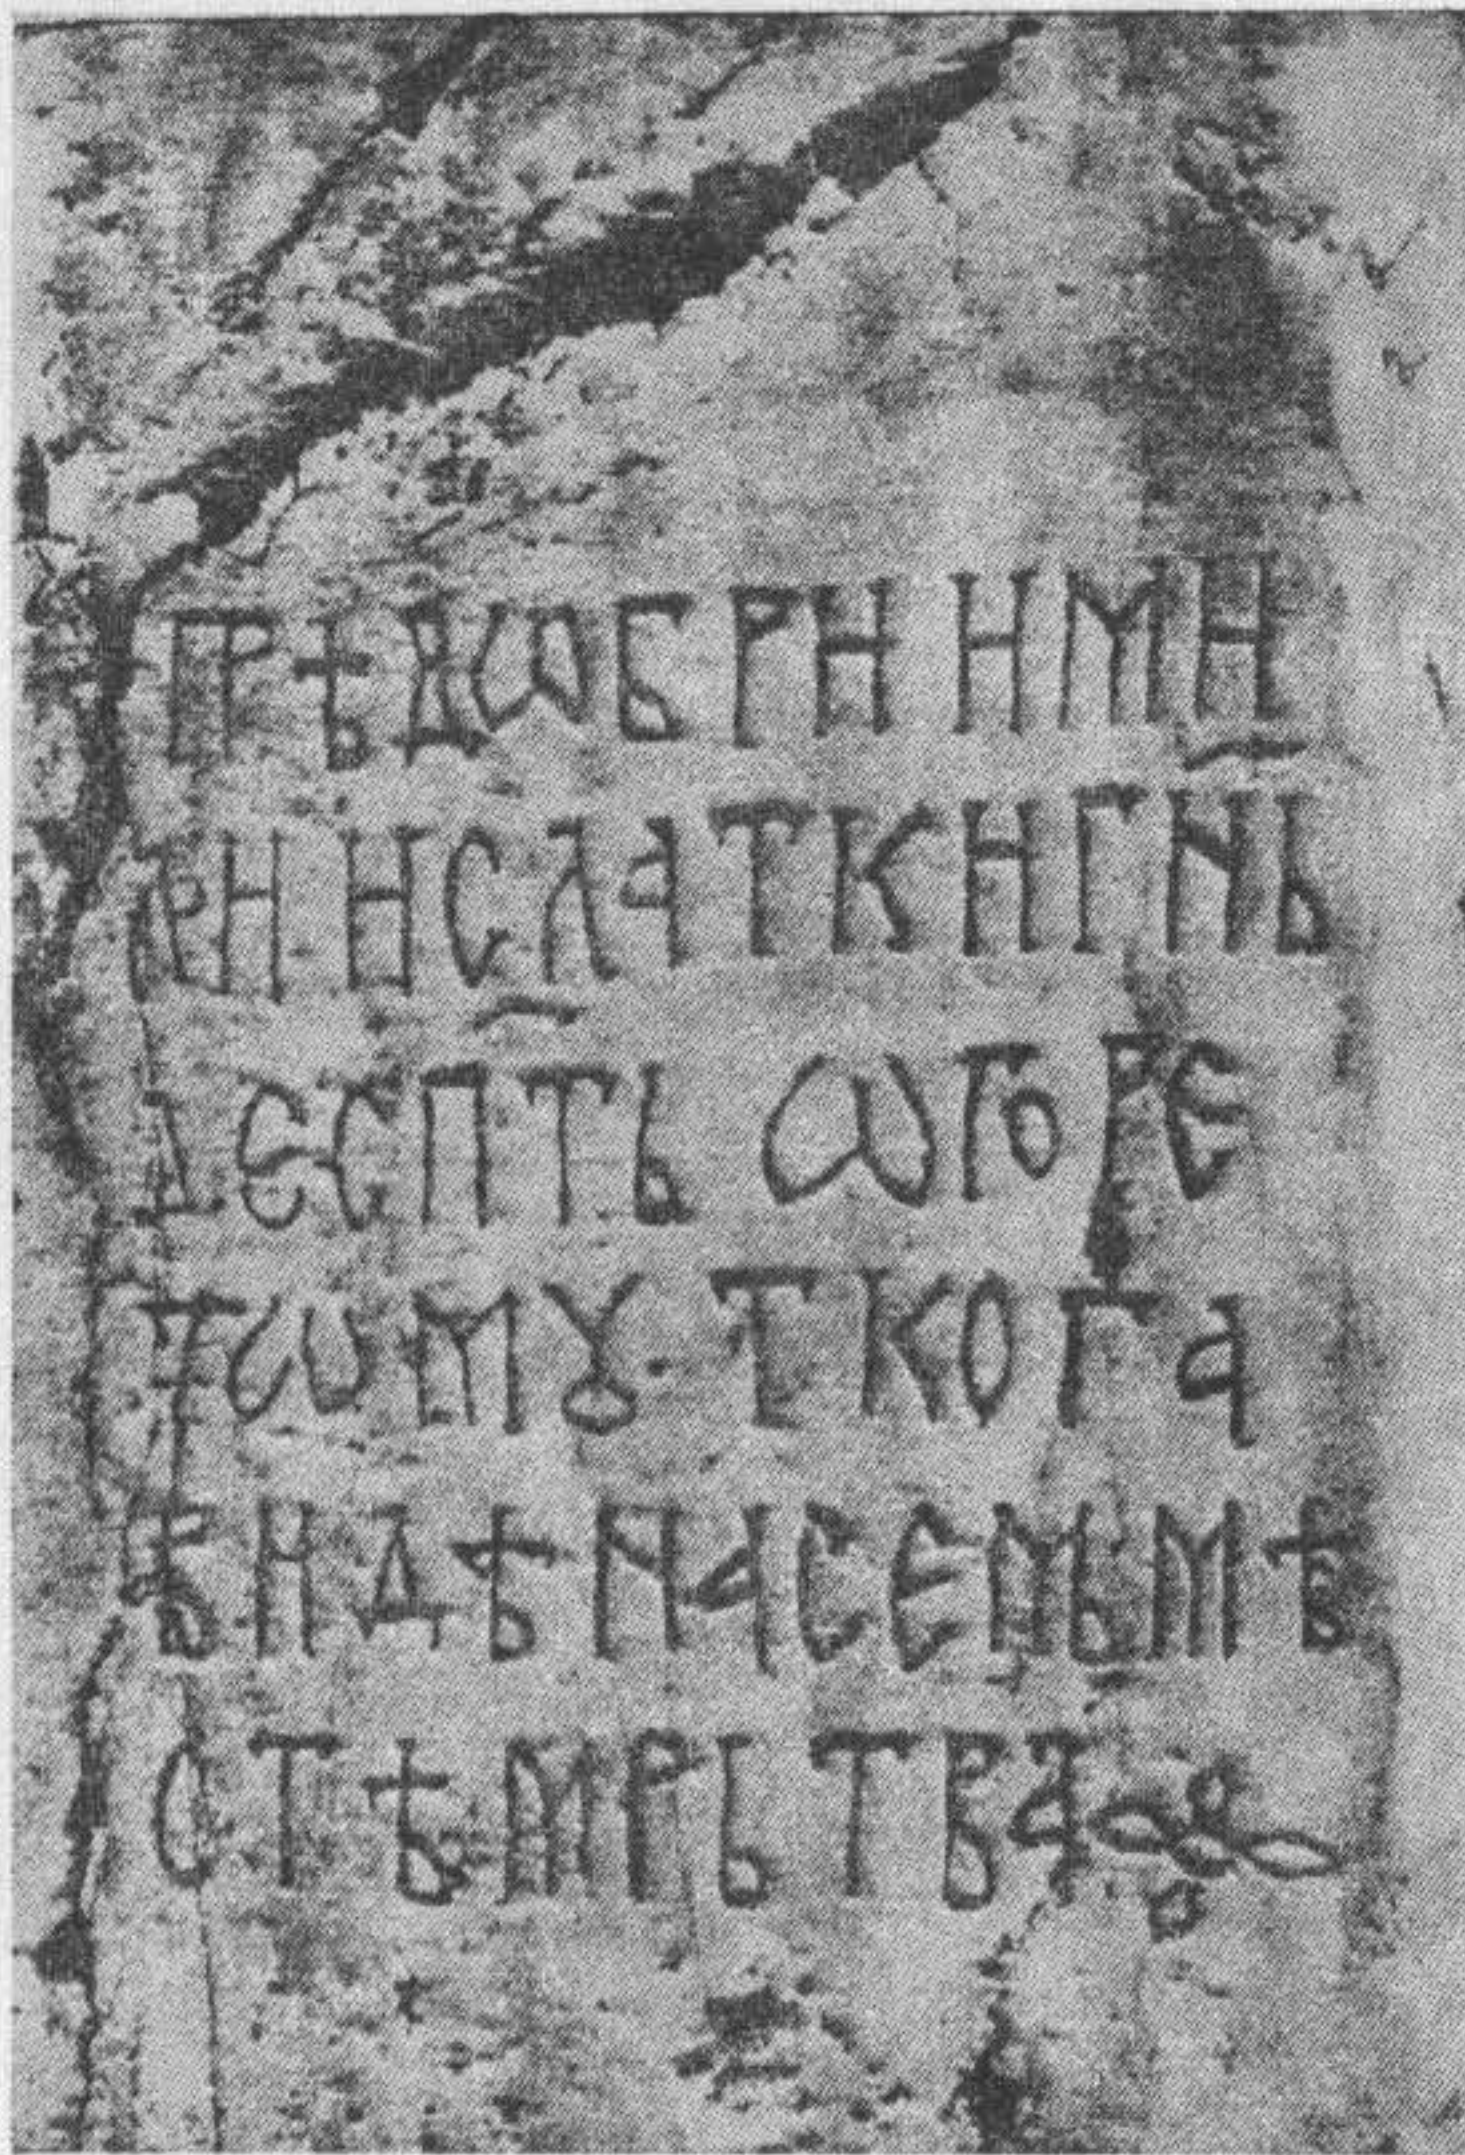 ПРѢДѠБРИ И МИ
РНИ СЛАТКИ Г҃НЬ
ДЕСПТЬ ѠГОРЕ
ТѠМꙊ · ТКО ГА
ВИДѢ НА СЕМЬ МѢ
СТѢ МРЬТВА